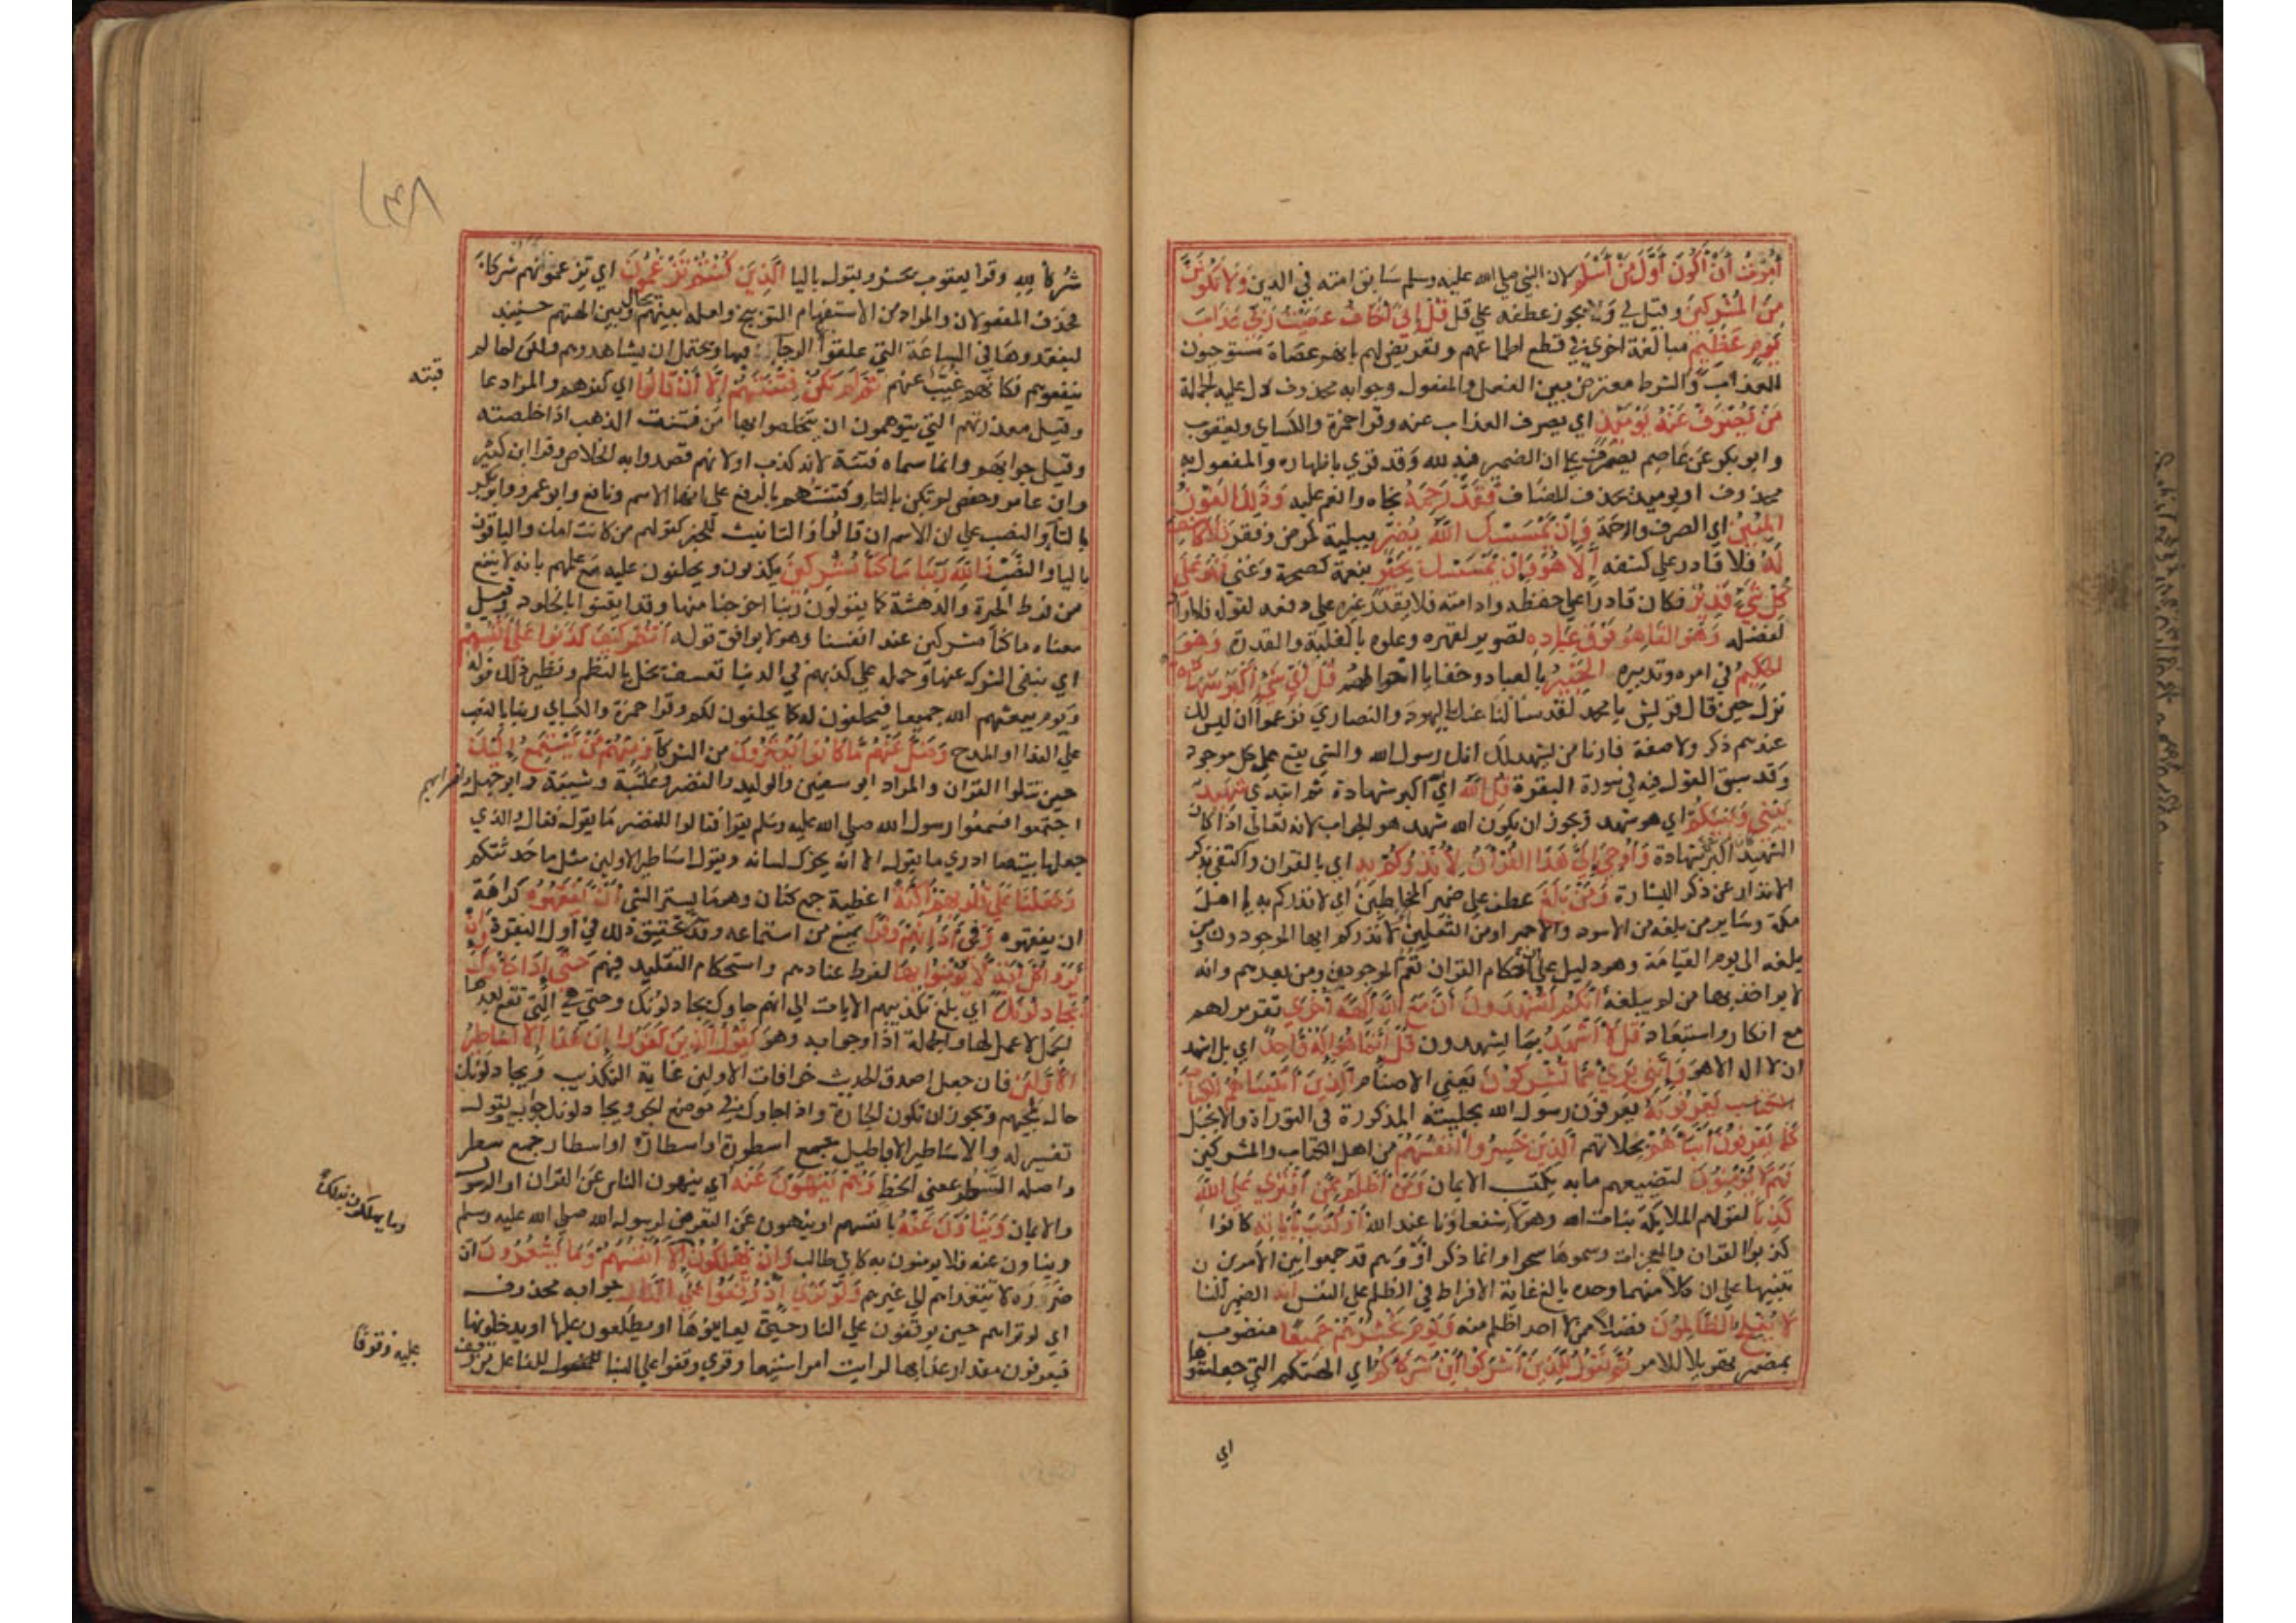 أُمِرْتُ أَنْ أَكُونَ أَوَّلَ مَنْ أَسْلَمَ لان النبي صلي الله عليه وسلم سابق امته في الدين وَلَا تَكُونَنَّ
مِنَ الْمُشْرِكِينَ وقيل لي ولا يجوز عطفه علي قل قُلْ إِنِّي أَخَافُ عصيت ربي عذاب
يَوْمٍ عَظِيمٍ مبالغة اخري في قطع اطماعهم وتعريض لهم بانهم عصاة مستوجبون
للعذاب والشرط معترض بين الفعل والمفعول وجوابه محذوف دل عليه الجملة
مَنْ يُصْرَفْ عَنْهُ يَوْمَئِذٍ اي يصرف العذاب عنه وقرا حمزة والكساي ويعقوب
وابو بكر عن عاصم يصرف علي ان الضمير فيه لله وقد قري باظهاره والمفعول به
محذوف او يومئذ بحذف المضاف فَقَدْ رَحِمَهُ نجاه وانعم عليه وَذَلِكَ الْفَوْزُ
الْمُبِينُ اي الصرف والرحمة وَإِنْ يَمْسَسْكَ اللَّهُ بِضُرٍّ ببلية كمرض وفقر فَلَا كَاشِفَ
لَهُ فلا قادر علي كشفه إِلَّا هُوَ وَإِنْ يَمْسَسْكَ بِخَيْرٍ بنعمة كصحة وغني فَهُوَ عَلَى
كُلِّ شَيْءٍ قَدِيرٌ فكان قادرا علي حفظه وادامته فلا يقدر غيره علي دفعه لقوله فلا راد
لفضله وَهُوَ الْقَاهِرُ فَوْقَ عِبَادِهِ تصوير لقهره وعلوه بالغلبة والقدرة وَهُوَ
الْحَكِيمُ في امره وتدبيره الْخَبِيرُ بالعباد وخفايا احوالهم قُلْ أَيُّ شَيْءٍ أَكْبَرُ شَهَادَةً
نزل حين قال قريش يا محمد لقد سالنا عنك اليهود والنصاري فزعموا ان ليس لك
عندهم ذكر ولا صفة فارنا من يشهد لك انك رسول الله والشي يقع علي كل موجود
وقد سبق القول فيه في سورة البقرة قُلِ اللَّهُ اي الله اكبر شهادة ثم ابتدي شَهِيدٌ
بَيْنِي وَبَيْنَكُمْ اي هو شهيد ويجوز ان يكون الله شهيد هو الجواب لانه تعالي اذا كان
الشهيد كان اكبر شي شهادة وَأُوحِيَ إِلَيَّ هَذَا الْقُرْآنُ لِأُنْذِرَكُمْ بِهِ اي بالقران واكتفي بذكر
الانذار عن ذكر البشارة وَمَنْ بَلَغَ عطف علي ضمير المخاطبين اي لانذركم به يا اهل
مكة وساير من بلغه من الاسود والاحمر او من الثقلين لانذركم ايها الموجودون ومن
يلغه الي يوم القيامة وهو دليل علي ان احكام القران تعم الموجودين ومن بعدهم وانه
لا يواخذ بها من لم يبلغه أَئِنَّكُمْ لَتَشْهَدُونَ أَنَّ مَعَ اللَّهِ آلِهَةً أُخْرَى تقرير لهم
مع انكار واستبعاد قُلْ لَا أَشْهَدُ بما يشهدون قُلْ إِنَّمَا هُوَ إِلَهٌ وَاحِدٌ اي بل اشهد
ان لا اله الا هو وَإِنَّنِي بَرِيءٌ مِمَّا تُشْرِكُونَ يعني الاصنام الَّذِينَ آتَيْنَاهُمُ الْكِتَابَ
يَعْرِفُونَهُ يعرفون رسول الله بحليته المذكورة في التوراة والانجيل
كَمَا يَعْرِفُونَ أَبْنَاءَهُمْ بحلاتهم الَّذِينَ خَسِرُوا أَنْفُسَهُمْ من اهل الكتاب والمشركين
فَهُمْ لَا يُؤْمِنُونَ لتضييعهم ما به يكتسب الايمان وَمَنْ أَظْلَمُ مِمَّنِ افْتَرَى عَلَى اللَّهِ
كَذِبًا كقولهم الملايكة بنات الله وهولاء شفعاونا عند الله أَوْ كَذَّبَ بِآيَاتِهِ كانوا
كذبوا القران والمعجزات وسموها سحرا وانما ذكر او وهم قد جمعوا بين الامرين
تنبيها علي ان كلا منهما وحده بالغ غاية الافراط في الظلم علي النفس إِنَّهُ الضمير للشان
لَا يُفْلِحُ الظَّالِمُونَ فضلا عمن لا احد اظلم منه وَيَوْمَ نَحْشُرُهُمْ جَمِيعًا منصوب
بمضمر تهويلا للامر ثُمَّ نَقُولُ لِلَّذِينَ أَشْرَكُوا أَيْنَ شُرَكَاؤُكُمُ اي الهتكم التي جعلتموها
اي
شركاء لله وقرا يعقوب يحشر ويقول باليا الَّذِينَ كُنْتُمْ تَزْعُمُونَ اي تزعمونهم شركاء
فحذف المفعولان والمراد من الاستفهام التوبيخ ولعله يحال بينهم وبين الهتهم حينيذ
ليفقدوها في الساعة التي علقوا الرجاء فيها ويحتمل ان يشاهدوهم ولكن لما لم
ينفعوهم فكانهم غيب عنهم ثُمَّ لَمْ تَكُنْ فِتْنَتُهُمْ إِلَّا أَنْ قَالُوا اي كفرهم والمراد عا
قبته
وقيل معذرتهم التي يتوهمون ان يتخلصوا بها من فتنت الذهب اذا خلصته
وقيل جوابهم وانما سماه فتنة لانه كذب او لانهم قصدوا به الخلاص وقرا ابن كثير
وابن عامر وحفص لم تكن بالتا وفتنتهم بالرفع علي انها الاسم ونافع وابو عمرو وابو بكر
بالتا والنصب علي ان الاسم ان قالوا والتانيث للخبر كقولهم من كانت امك والباقون
باليا والنصب وَاللَّهِ رَبِّنَا مَا كُنَّا مُشْرِكِينَ يكذبون ويحلفون عليه مع علمهم بانه لا ينفع
من فرط الحيرة والدهشة كما يقولون ربنا اخرجنا منها وقد ايقنوا بالخلود وقيل
معناه ما كنا مشركين عند انفسنا وهو لا يوافق قوله انْظُرْ كَيْفَ كَذَبُوا عَلَى أَنْفُسِهِمْ
اي بنفي الشرك عنها وحمله علي كذبهم في الدنيا تعسف يخل بالنظم ونظير ذلك قوله
ويوم يبعثهم الله جميعا فيحلفون له كما يحلفون لكم وقرا حمزة والكسايي ربنا بالنصب
علي الندا او المدح وَضَلَّ عَنْهُمْ مَا كَانُوا يَفْتَرُونَ من الشركا وَمِنْهُمْ مَنْ يَسْتَمِعُ إِلَيْكَ
حين تتلوا القران والمراد ابو سفين والوليد والنضر وعتبة وشيبة وابو جهل واضرابهم
اجتمعوا فسمعوا رسول الله صلي الله عليه وسلم يقرا فقالوا للنضر ما يقول فقال والذي
جعلها بيته ما ادري ما يقول الا انه يحرك لسانه ويقول اساطير الاولين مثل ما حدثتكم
وَجَعَلْنَا عَلَى قُلُوبِهِمْ أَكِنَّةً اغطية جمع كنان وهو ما يستر الشي أَنْ يَفْقَهُوهُ كراهة
ان يفقهوه وَفِي آذَانِهِمْ وَقْرًا يمنع من استماعه وقد تحقيق ذلك في اول البقرة وَإِنْ
يَرَوْا كُلَّ آيَةٍ لَا يُؤْمِنُوا بِهَا لفرط عنادهم واستحكام التقليد فيهم حَتَّى إِذَا جَاءُوكَ
يُجَادِلُونَكَ اي بلغ تكذيبهم الايات الي انهم جاوك يجادلونك وحتي هي التي تقع بعدها
الجمل لا عمل لها والجملة اذا وجوابه وهو يَقُولُ الَّذِينَ كَفَرُوا إِنْ هَذَا إِلَّا أَسَاطِيرُ
الْأَوَّلِينَ فان جعل اصدق الحديث خرافات الاولين غاية التكذيب ويجادلونك
حال لمجيهم ويجوز ان تكون الجارة واذا جاوك في موضع الجر ويجادلونك جواب ويقول
تفسير له والاساطير الاباطيل جمع اسطورة او اسطارة او اسطار جمع سطر
واصله السطر بمعني الخط وَهُمْ يَنْهَوْنَ عَنْهُ اي ينهون الناس عن القران او الرسول
والايمان وَيَنْأَوْنَ عَنْهُ بانفسهم او ينهون عن التعرض لرسول الله صلي الله عليه وسلم
وينأون عنه فلا يومنون به كابي طالب وَإِنْ يُهْلِكُونَ إِلَّا أَنْفُسَهُمْ وَمَا يَشْعُرُونَ ان
وما يهلكون بذلك
ضرره لا يتعداهم الي غيرهم وَلَوْ تَرَى إِذْ وُقِفُوا عَلَى النَّارِ جوابه محذوف
اي لو تراهم حين يوقفون علي النار حتي يعاينوها او يطلعون عليها او يدخلونها
فيعرفون مقدار عذابها لرايت امرا شنيعا وقري وقفوا علي البنا للفاعل من وقف
عليه وقوفا